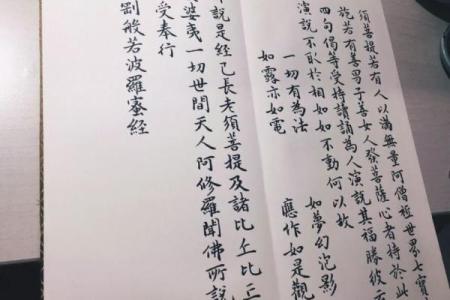 須菩提若有人以滿無量阿僧祇世界七寶
施若有善男子善女人發菩薩心者持於此
四句偈等受持讀誦為人演說其福勝彼云
演說不取於相如如不動何以故
一切有為法 如夢幻泡影
如露亦如電 應作如是觀
說是經已長老須菩提及諸比丘比丘
婆夷一切世間天人阿修羅聞佛所說
受奉行
剛般若波羅蜜經